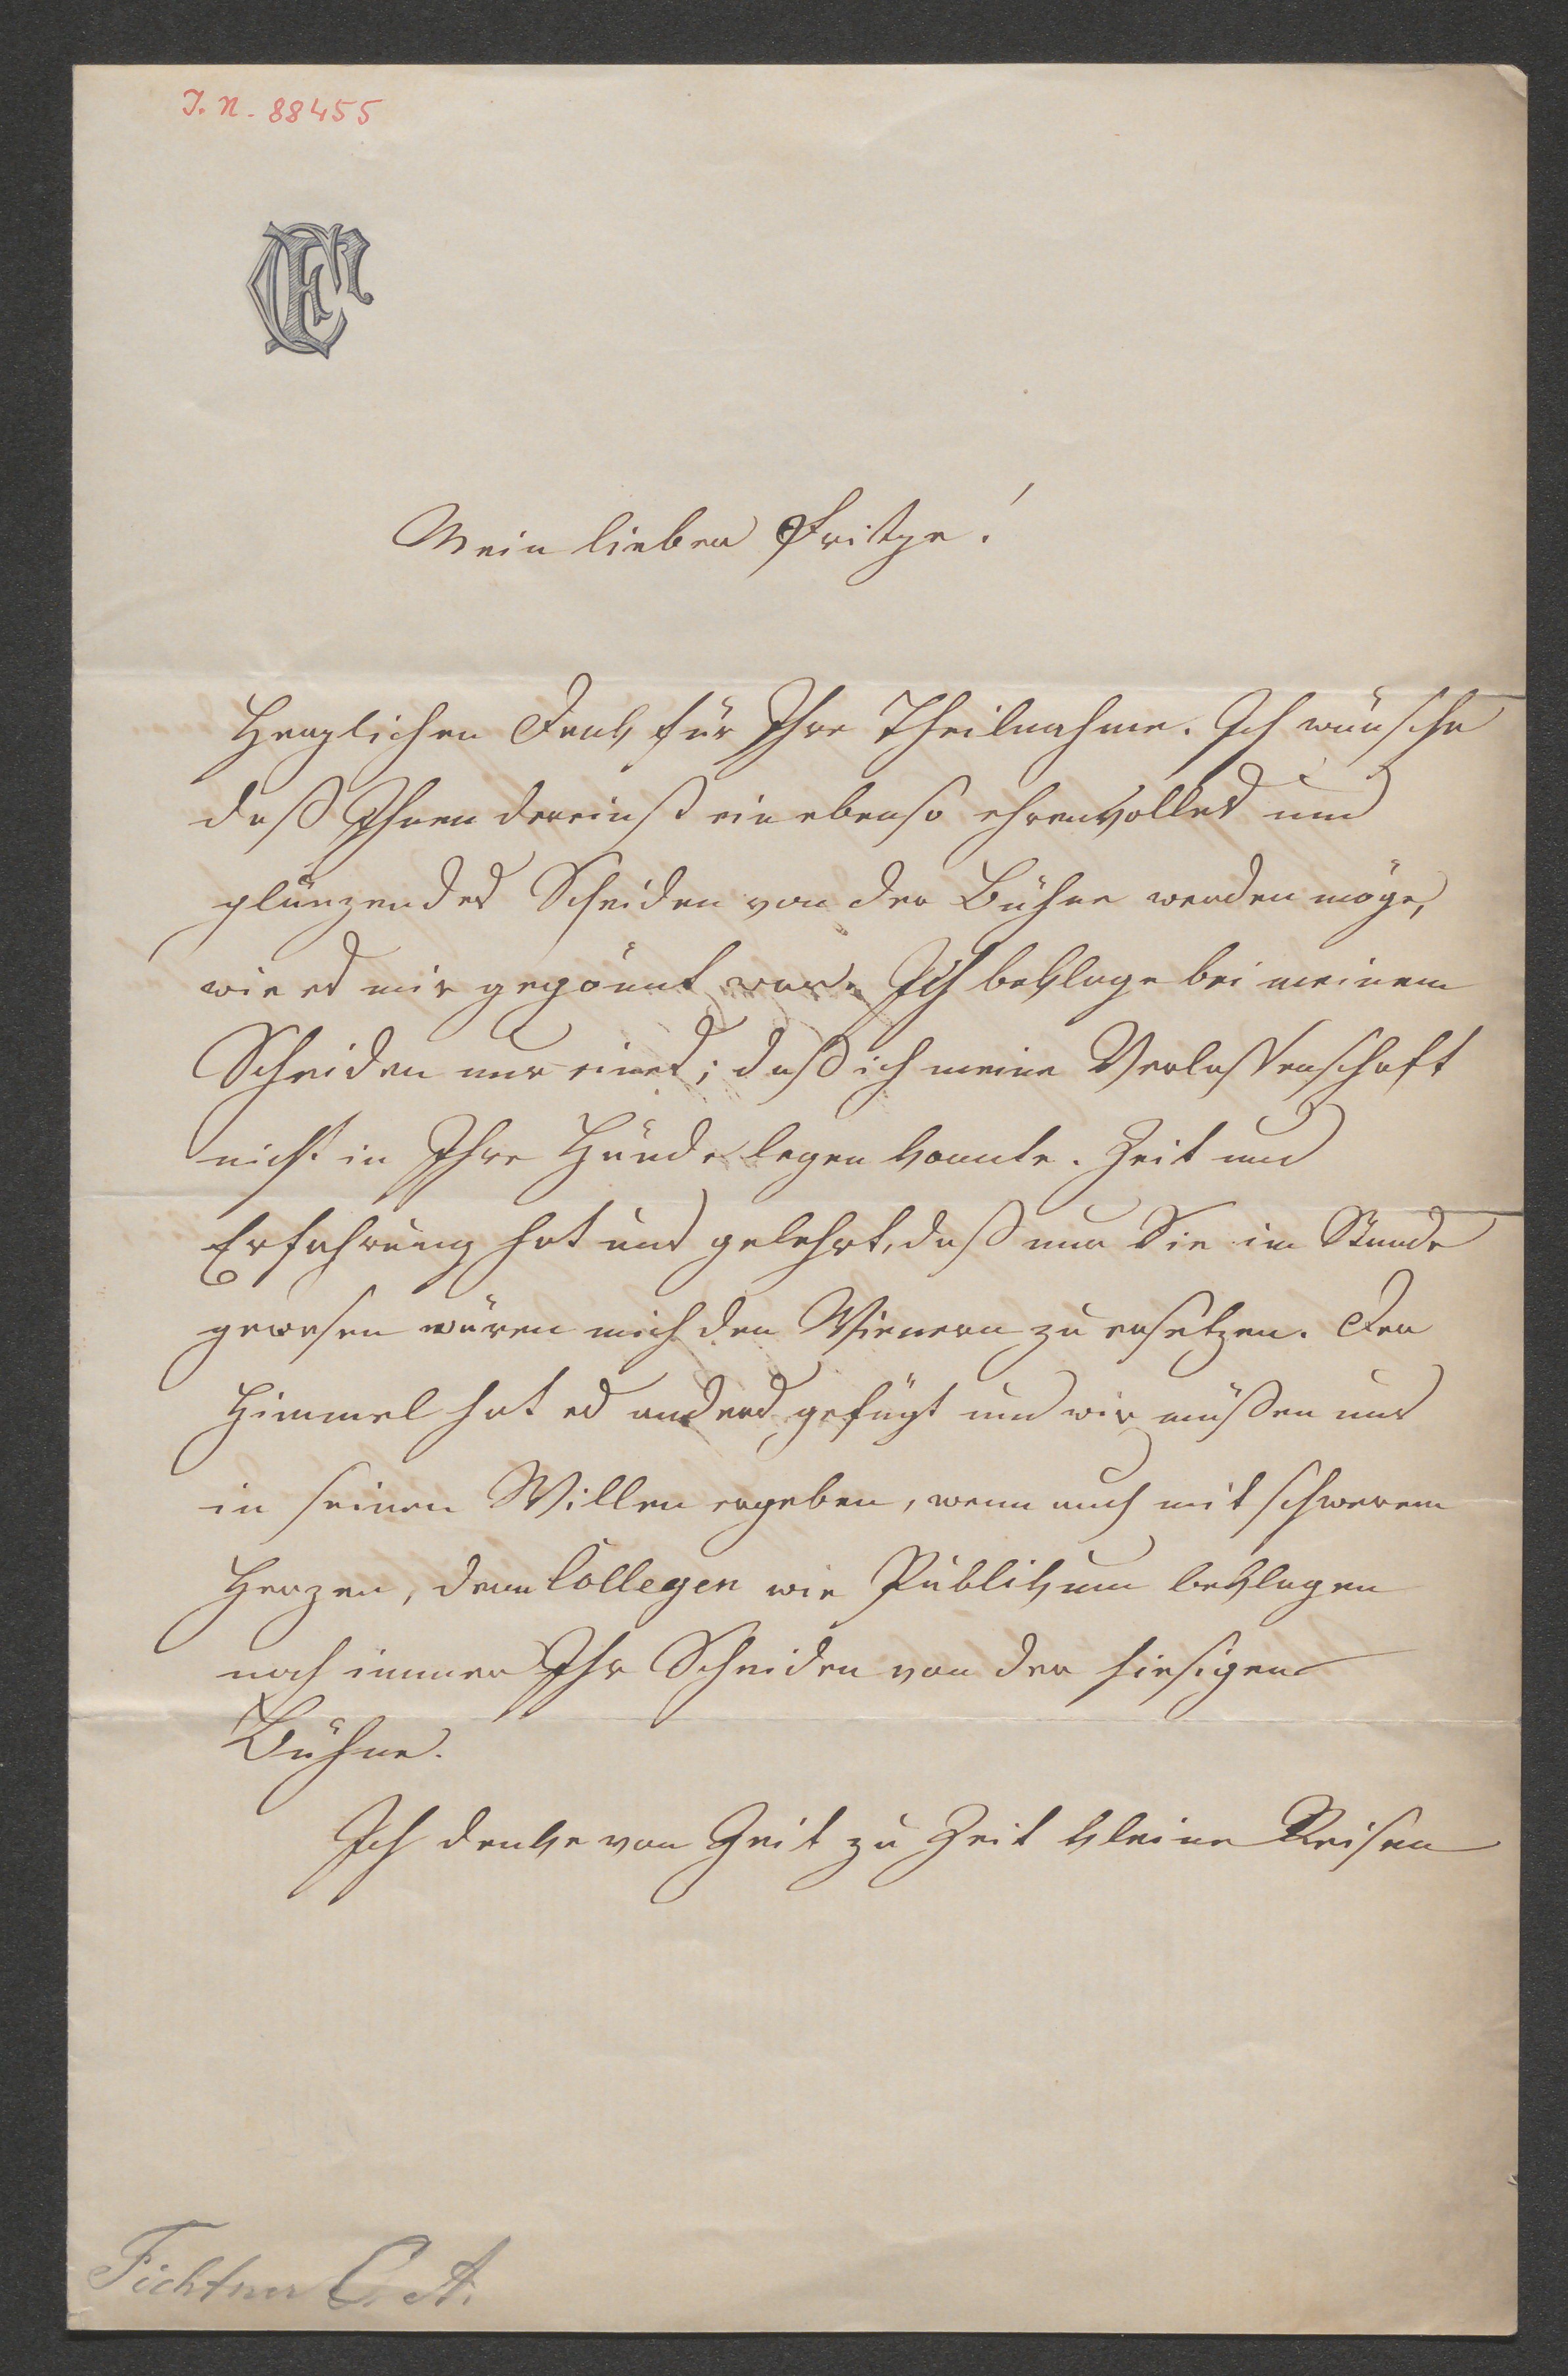 I. N. 88455
CF
Mein lieber Fritze!
Herzlichen Dank für Ihre Theilnahme. Ich wünsche
daß Ihnen dereinst ein ebenso ehrenvolles und
glänzendes Scheiden von der Bühne werden möge,
wie es mir gegönnt war. Ich beklage bei meinem
Scheiden nur eines; daß ich meine Verlassenschaft
nicht in Ihre Hände legen konnte. Zeit und
Erfahrung hat uns gelehrt, daß nur Sie im Stande
gewesen wären mich den Wienern zu ersetzen. Der
Himmel hat es anders gefügt und wir müßen uns
in seinen Willen ergeben, wenn auch mit schwerem
Herzen, denn Collegen wie Publikum beklagen
noch immer Ihr Scheiden von der hiesigen
Bühne.
Ich denke von Zeit zu Zeit kleine Reisen
Fichtner C. A.